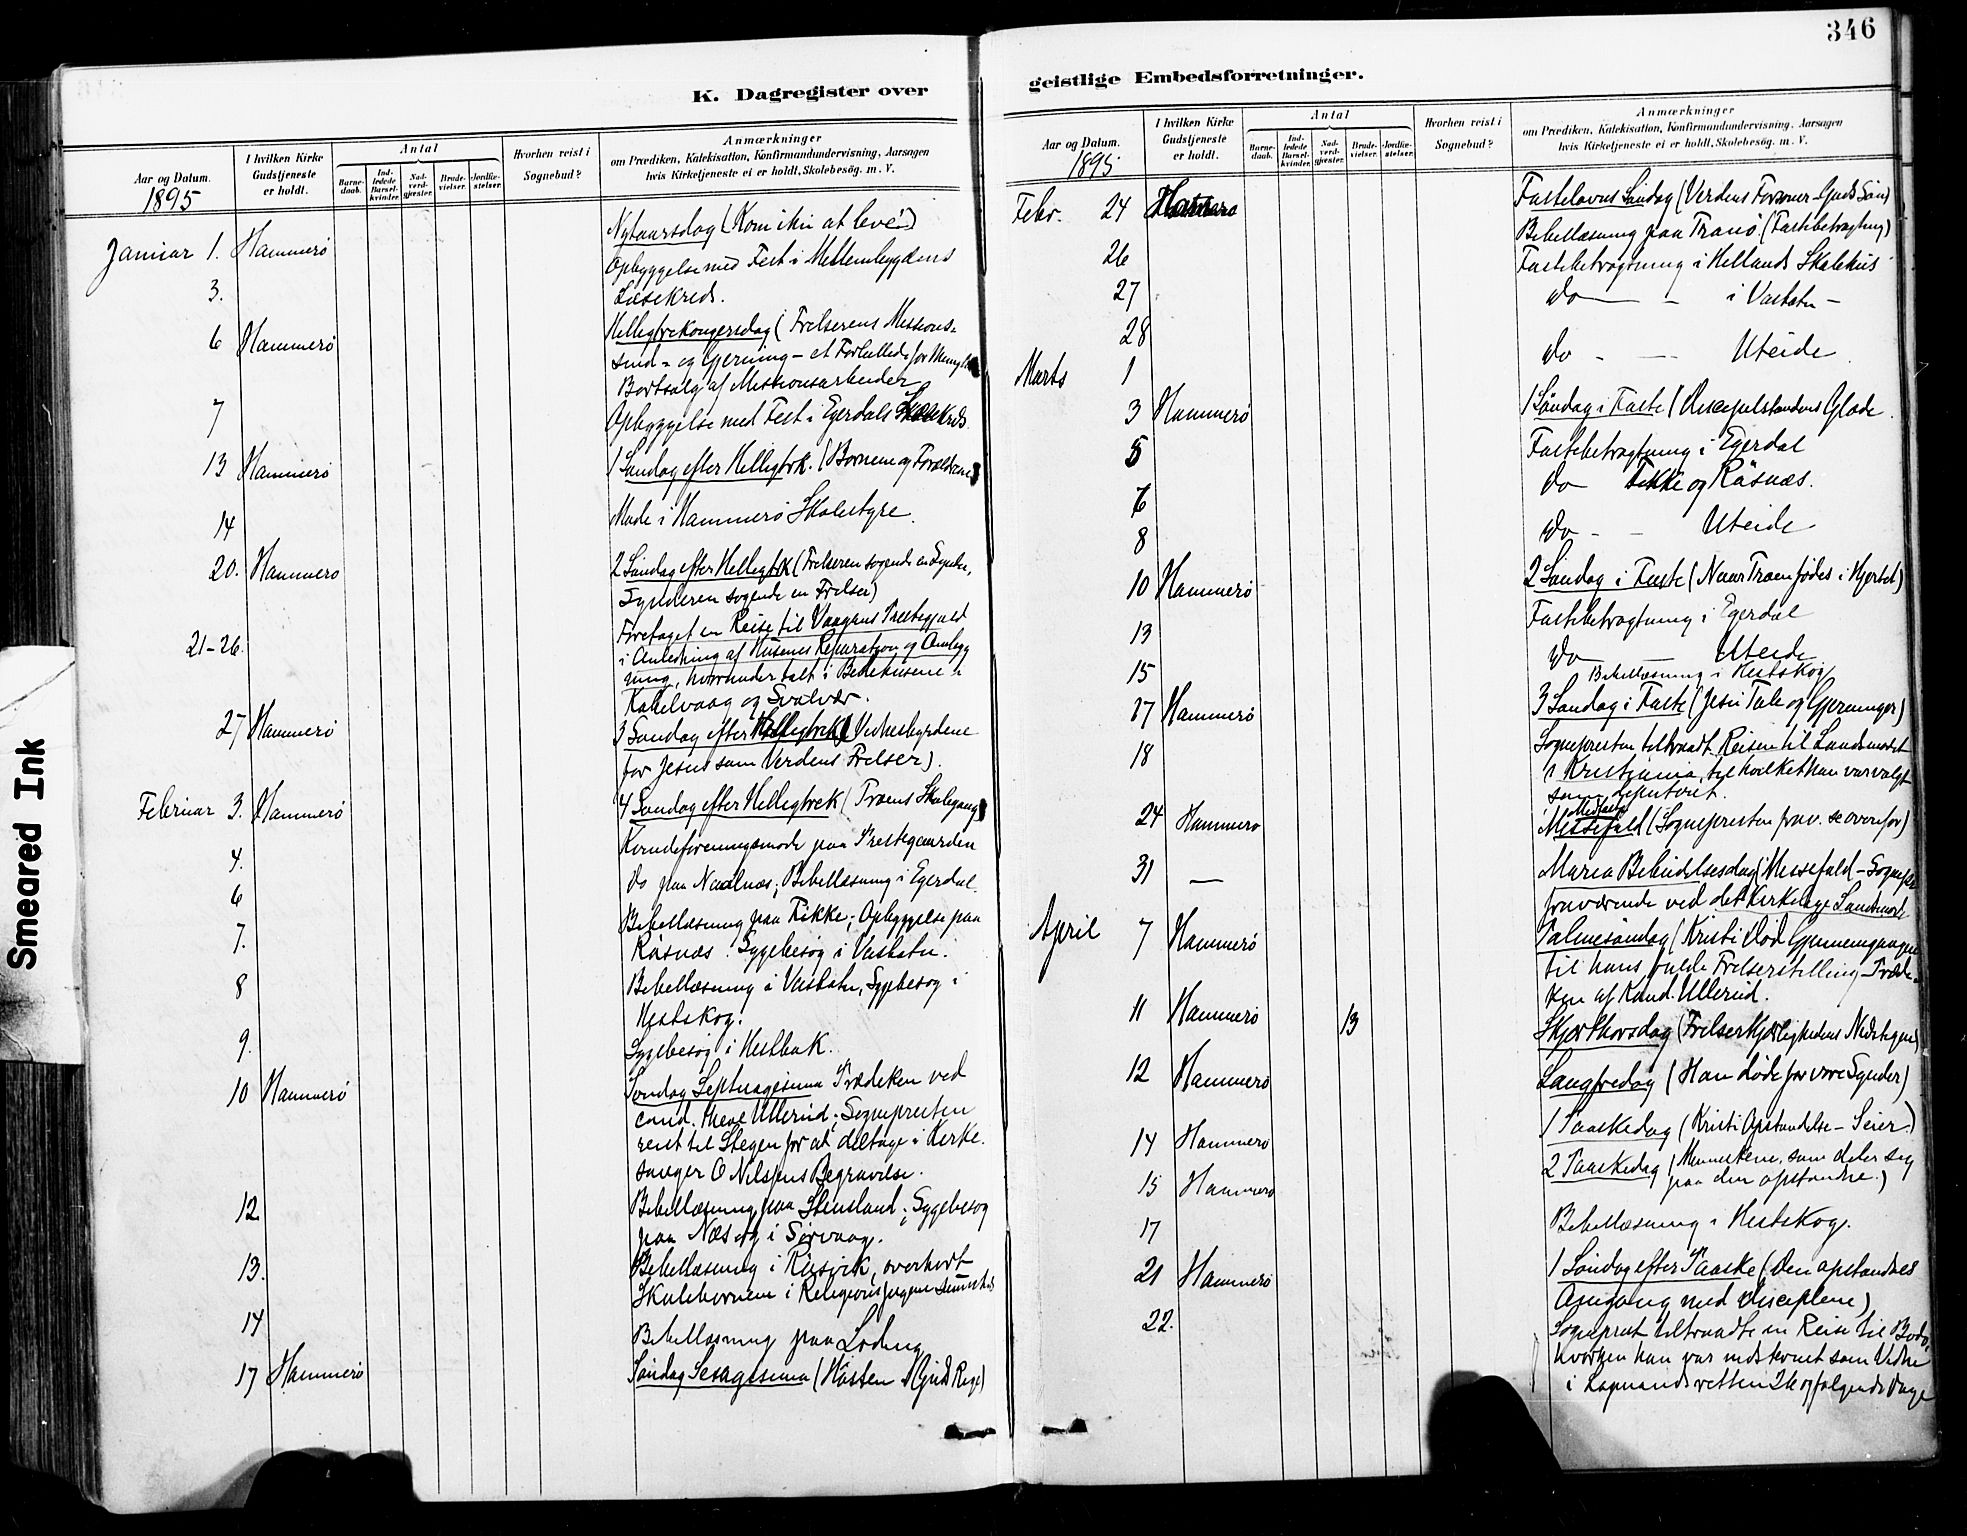 346
K. Dagregister over
geistlige Embedsforretninger.
Aar og Datum.
1895
I hvilken Kirke
Gudstjeneste
er holdt.
Antal
Barne-
daab.
Ind-
ledede
Barsel-
kvinder.
Nad-
verd-
gjæster.
Brude-
vielser.
Jordfæ-
stelser.
Hvorhen reist i
Sognebud?
Anmærkninger
om Prædiken, Katekisation, Konfirmandundervisning, Aarsagen
hvis Kirketjeneste ei er holdt, Skolebesøg. m. V.
Januar 1. Hammerø Nytaarsdag (Kom ihu at leve!)
3. Opbyggelse med Fest i Mellembygdens
Læsekreds.
6 Hammerø Helligtrekongersdag (Frelserens Missions-
sind- og Gjerning - et Forbillede for Menigh
Bortsalg af Missionsarbeider
7 Opbyggelse med Fest i Egerdals Læsekreds.
13 Hammerø 1 Søndag efter Helligtrk. (Børnene og Forældrene
14 Møde i Hammerø Skolestyre.
20. Hammerø 2 Søndag efter Helligtrk (Frelseren søgende en Synder,
Synderen søgende en Frelser)
21-26. Foretaget en Reise til Vaagens Præstegjæld
i Anledning af Husenes Reparation og Ombyg
ning, herunder talt i Bedehusene i
Kabelvaag og Svolvær.
27 Hammerø 3 Søndag efter Helligtrek (Vidnesbyrdene
for Jesus som Verdens Frelser).
Februar 3. Hammerø 4 Søndag efter Helligtrek (Troens Skolegang
4. Kvindeforeningsmøde paa Prestegaarden
6 Do paa Naalnæs; Bibellæsning i Egerdal.
7. Bibellæsning paa Fikke; Opbyggelse paa
Røsnæs. Sygebesøg i Vasbotn.
8 Bibellæsning i Vasbotn, Sygebesøg i
Hestskog.
9. Sygebesøg i Hestbak.
10 Hammerø Søndag Septuagesima Prædiken ved
cand. theol Ullerud; Sognepresten
reist til Stegen for at deltage i Kirke-
sanger O Nilssens Begravelse.
12. Bibellæsning paa Stensland; Sygebesøg
paa Næs og i Sørvaag.
13. Bibellæsning i Risvik, overhørt
Skolebørnene i Religionsfagene sammesteds
14 Bibellæsning paa Løding
17 Hammerø Søndag Sexagesima (Høsten i Guds Rige)
Aar og Datum.
1895
I hvilken Kirke
Gudstjeneste
er holdt.
Antal
Barne-
daab.
Ind-
ledede
Barsel-
kvinder.
Nad-
verd-
gjæster.
Brude-
vielser.
Jordfæ-
stelser.
Hvorhen reist i
Sognebud?
Anmærkninger
om Prædiken, Katekisation, Konfirmandundervisning, Aarsagen
hvis Kirketjeneste ei er holdt, Skolebesøg. m. V.
Febr. 24 Fastelavns Søndag (Verdens Forsoner - Guds Søn)
26 Bibellæsning paa Tranø. (Fastebetragtning)
27 Fastebetragtning i Hellands Skolehus
28 Do - i Vasbotn -
Marts 1 Do - Uteide
3 Hammerø 1 Søndag i Faste (Discipelstandens Glæde
5 Fastebetragtning i Egerdal
6 Do Fikke og Røsnæs.
8 Do - - Uteide
10 Hammerø 2 Søndag i Faste (Naar Troen fødes i Hjertet)
13 Fastebetragtning i Egerdal
15 Do Uteide
Bibellæsning i Hestskog
17 Hammerø 3 Søndag i Faste (Jesu Tale og Gjerninger)
18 Sognepresten tiltraadt Reisen til Landsmødet
i Kristiania, til hvilket han var valgt
som deputeret.
24 Hammerø Midfaste
Messefald (Sognepresten frav. se ovenfor)
31 — Maria Bebudelsesdag (Messefald - Sognepr
fraværende ved det kirkelige Landsmøde
April 7 Hammerø Palmesøndag (Kristi Død Gjennemgangen
til hans fulde Frelserstilling - Prædi-
ken af Kand. Ullerud.
11 Hammerø 13 Skjærthorsdag (Frelserkjærlighedens Nadvertegn)
12 Hammerø Langfredag (Han døde for vore Synder)
14 Hammerø 1 Paaskedag (Kristi Opstandelse - Seier.)
15 Hammerø 2 Paaskedag (Menneskene, som deler sig
paa den opstandne.)
17 Bibellæsning i Hestskog.
21 Hammerø 1 Søndag efter Paaske (Den opstandnes
Omgang med Disciplene)
22. Sogneprest tiltraadte en Reise til Bodø,
hvorhen han var indstevnet som Vidne
i Lagmandsretten 26 og følgende Dage
Smeared Ink